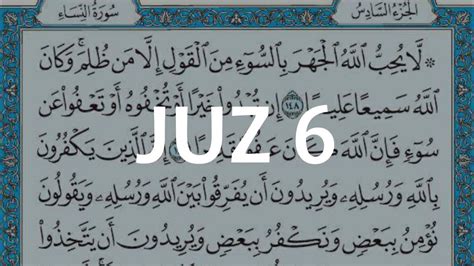 الجُزْءُ السَّادِسُ سُورَةُ النِّسَاءِ
۞ لَّا يُحِبُّ ٱللَّهُ ٱلْجَهْرَ بِٱلسُّوٓءِ مِنَ ٱلْقَوْلِ إِلَّا مَن ظُلِمَۚ وَكَانَ
ٱللَّهُ سَمِيعًا عَلِيمًا ١٤٨ إِن تُبْدُوا۟ خَيْرًا أَوْ تُخْفُوهُ أَوْ تَعْفُوا۟ عَن
سُوٓءٍ فَإِنَّ ٱللَّهَ كَانَ عَفُوًّا إِنَّ ٱلَّذِينَ يَكْفُرُونَ
JUZ 6
بِٱللَّهِ وَرُسُلِهِۦ وَيُرِيدُونَ أَن يُفَرِّقُوا۟ بَيْنَ ٱللَّهِ وَرُسُلِهِۦ وَيَقُولُونَ
نُؤْمِنُ بِبَعْضٍ وَنَكْفُرُ بِبَعْضٍ وَيُرِيدُونَ أَن يَتَّخِذُوا۟